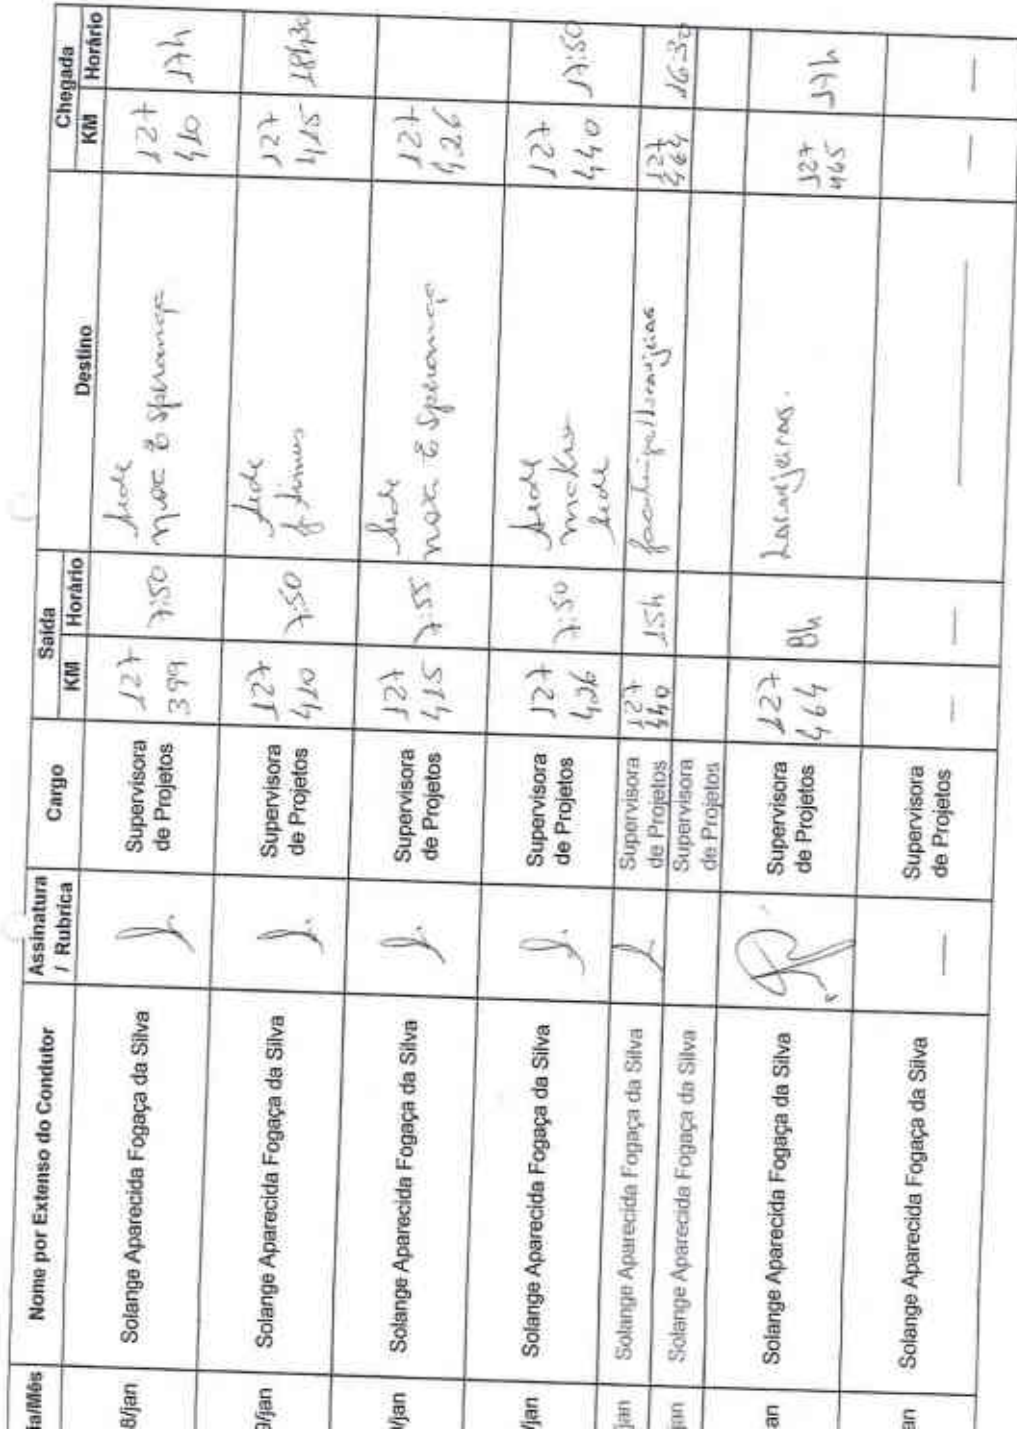 ia/Mês
Nome por Extenso do Condutor
Assinatura
/ Rubrica
Cargo
Saída
KM
Horário
Destino
Chegada
KM
Horário
8/jan
Solange Aparecida Fogaça da Silva
Supervisora
de Projetos
127
399
7:50
Sede
nova Esperança
127
410
17h
9/jan
Solange Aparecida Fogaça da Silva
Supervisora
de Projetos
127
410
7:50
Sede
127
415
18h30
/jan
Solange Aparecida Fogaça da Silva
Supervisora
de Projetos
127
415
7:55
Sede
nova Esperança
127
426
/jan
Solange Aparecida Fogaça da Silva
Supervisora
de Projetos
127
426
7:50
Sede
makro
Sede
127
440
17:50
jan
Solange Aparecida Fogaça da Silva
Supervisora
de Projetos
127
440
15h
127
464
16:30
jan
Solange Aparecida Fogaça da Silva
Supervisora
de Projetos
an
Solange Aparecida Fogaça da Silva
Supervisora
de Projetos
127
464
8h
Laranjeiras.
127
465
17h
an
Solange Aparecida Fogaça da Silva
—
Supervisora
de Projetos
—
—
—
—
—